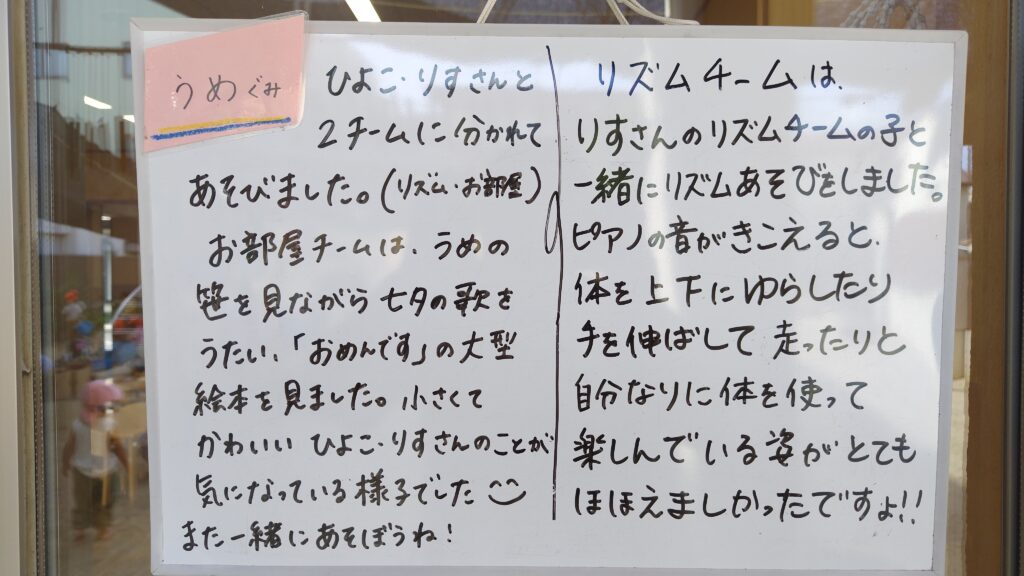 うめぐみ
ひよこ・りすさんと
2チームに分かれて
あそびました。(リズム・お部屋)
お部屋チームは、うめの
笹を見ながら七夕の歌を
うたい、「おめんです」の大型
絵本を見ました。小さくて
かわいい ひよこ・りすさんのことが
気になっている様子でした
また一緒にあそぼうね!
リズムチームは、
りすさんのリズムチームの子と
一緒にリズムあそびをしました。
ピアノの音がきこえると、
体を上下にゆらしたり
手を伸ばして走ったりと
自分なりに体を使って
楽しんでいる姿がとても
ほほえましかったですよ!!